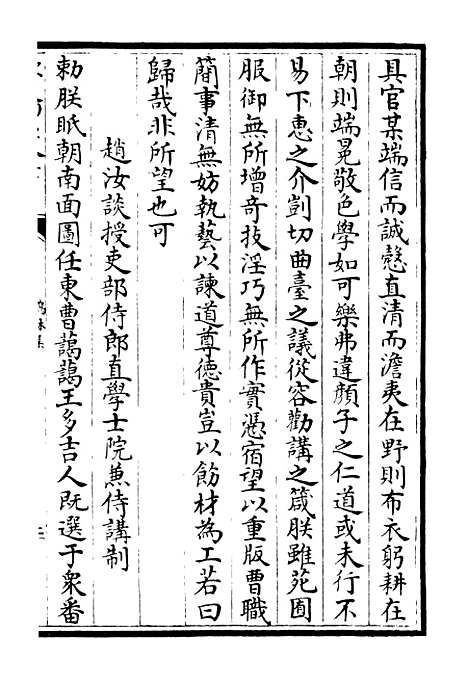 具官某端信而誠慤直清而澹夷在野則布衣躬耕在
朝則端冕敬色學如可樂弗違顔子之仁道或未行不
易下恵之介剴切曲臺之議從容勸講之箴朕雖苑囿
服御無所増竒技淫巧無所作實憑宿望以重版曹職
簡事清無妨執藝以諫道尊徳貴豈以飭材為工若曰
歸哉非所望也可
趙汝談授吏部侍郎直學士院兼侍講制
勑朕眂朝南面圖任東曹藹藹王多吉人旣選于衆番